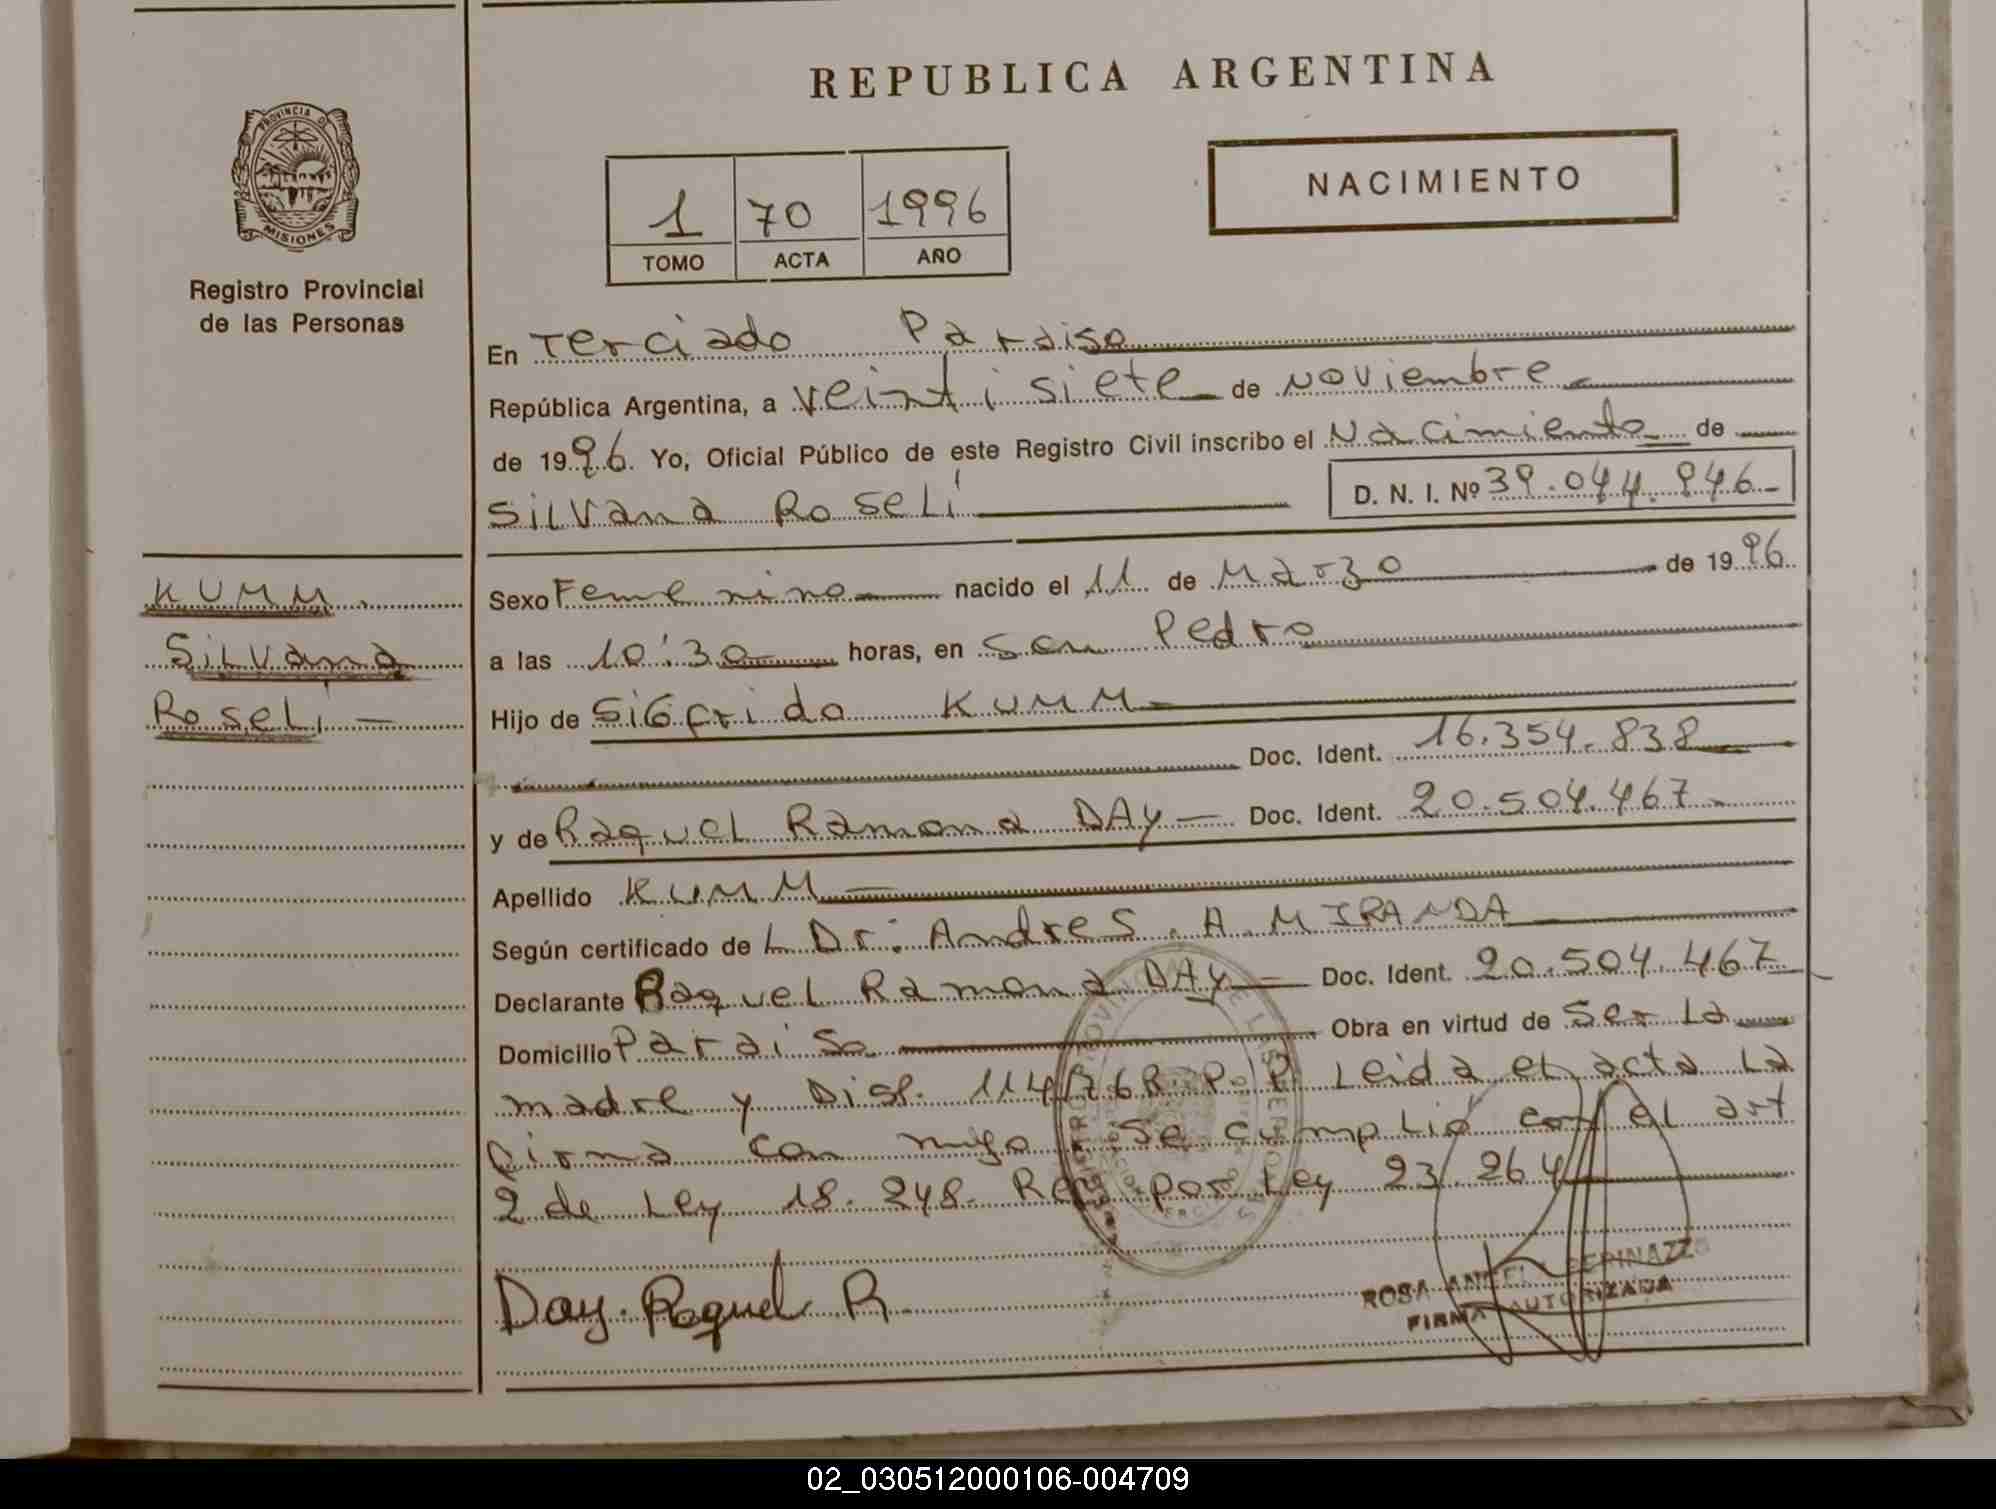 REPUBLICA ARGENTINA
PROVINCIA D
MISIONES
Registro Provincial
de las Personas
NACIMIENTO
1 70 1996
TOMO ACTA AÑO
En Terciado Paraiso
República Argentina, a veinti siete de noviembre
de 1996. Yo, Oficial Público de este Registro Civil inscribo el Nacimiento de
Silvana Roselí
D. N. I. Nº 39.044.946-
KUMM
Silvana
Roselí -
Sexo Femenino nacido el 11 de Marzo de 1996
a las 10:30 horas, en San Pedro
Hijo de Sigfrido KUMM
Doc. Ident. 16.354.838
y de Raquel Ramona DAY - Doc. Ident. 20.504.467-
Apellido KUMM
Según certificado de L Dr: Andres A. MIRANDA
Declarante Raquel Ramona DAY - Doc. Ident. 20.504.467
Domicilio Paraiso Obra en virtud de ser la
madre y Disp. 114/76 R.P.P. Leida el acta la
firma con migo. Se cumplió con el art
2 de Ley 18.248. por Ley 23.264
Day. Raquel R.
ROSA
FIRMA AUTORIZADA
02_030512000106-004709